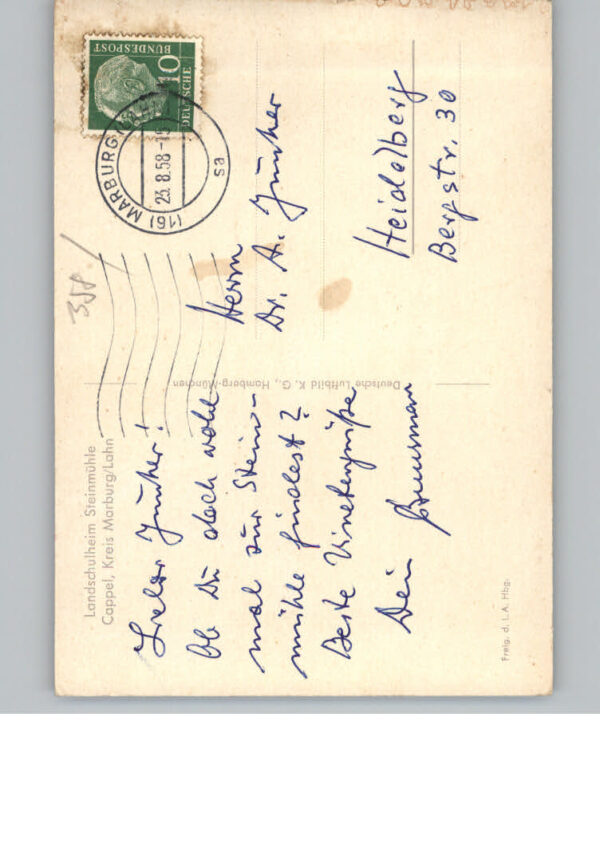 Landschulheim Steinmühle
Cappel, Kreis Marburg/Lahn
Lieber Junker!
Ob Du doch wohl
mal zur Stein-
mühle findest?
Beste
Dein
Freig. d. L.A. Hbg.
Deutsche Luftbild K. G., Hamburg-München
358
DEUTSCHE
BUNDESPOST
10
(16) MARBURG
23.8.58-15
sa
Herrn
Dr. A. Junker
Heidelberg
Bergstr. 30